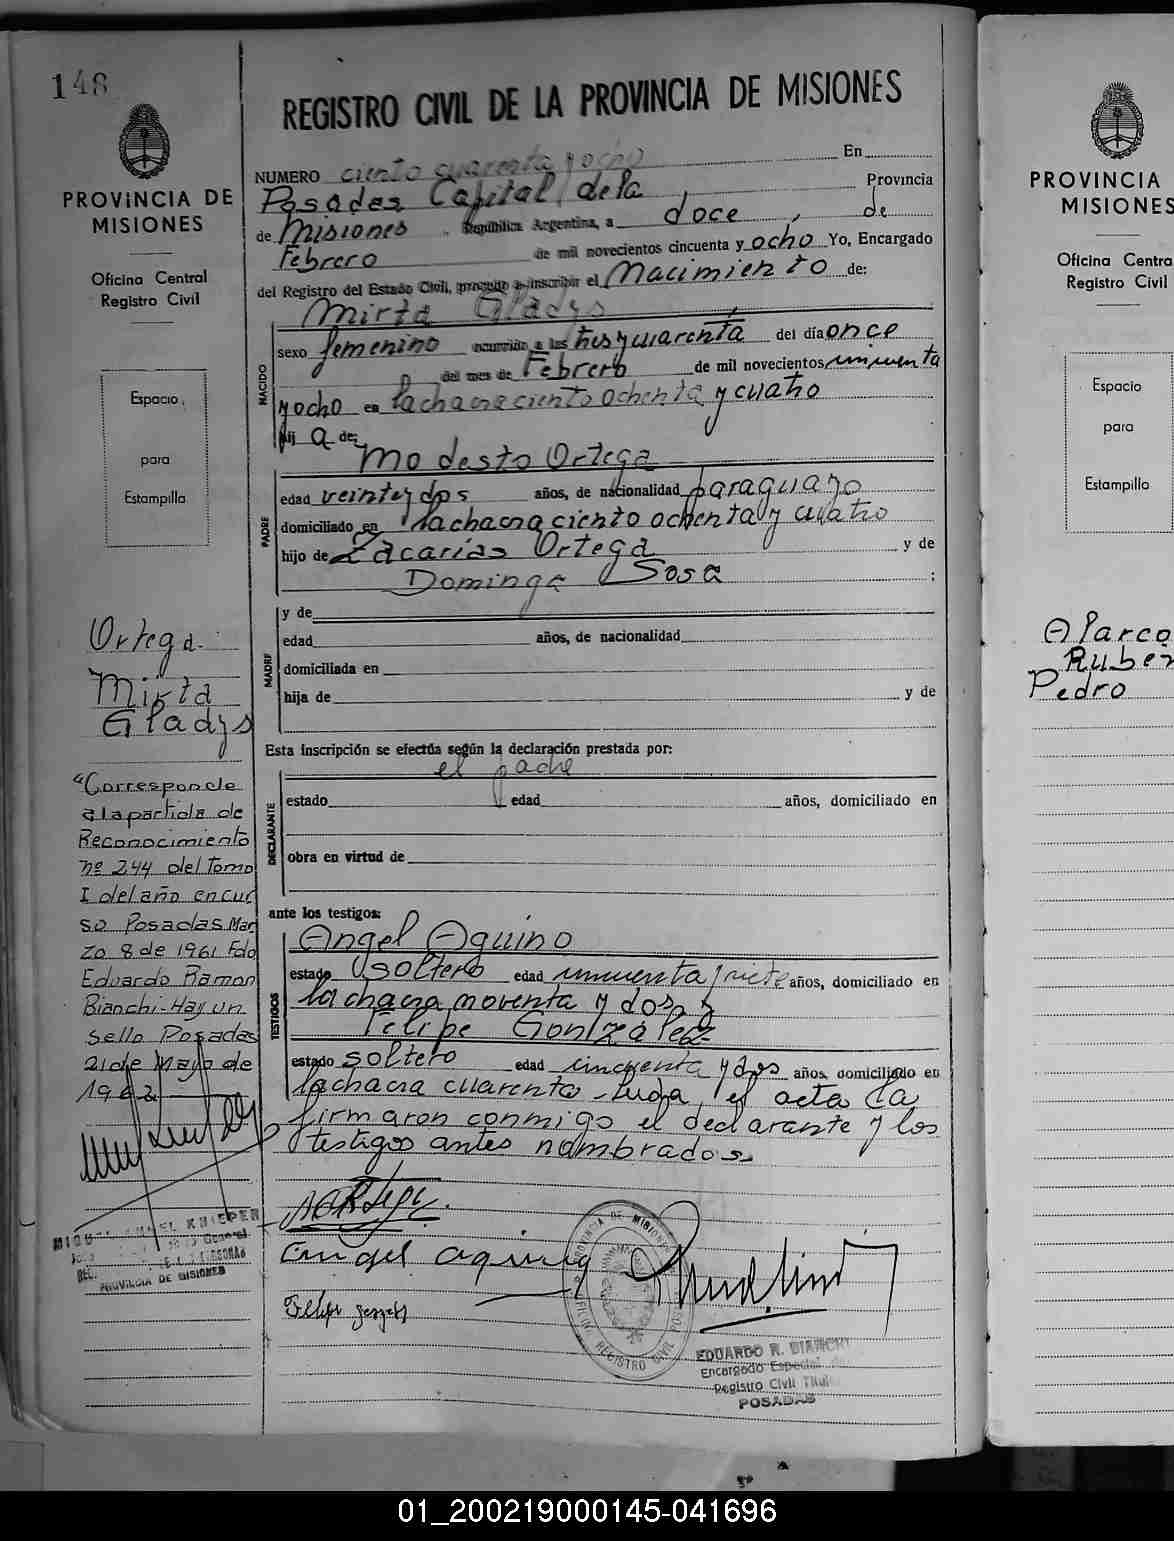 148
REGISTRO CIVIL DE LA PROVINCIA DE MISIONES
PROVINCIA DE
MISIONES
Oficina Central
Registro Civil
Espacio
para
Estampilla
NUMERO ciento cuarenta y ocho En
Posadas Capital de la Provincia
de Misiones, República Argentina, a doce, de
Febrero de mil novecientos cincuenta y ocho Yo, Encargado
del Registro del Estado Civil, procedo a inscribir el Nacimiento de:
Mirta Gladys
NACIDO
sexo femenino ocurrido a las tres y cuarenta del día once
del mes de Febrero de mil novecientos cincuenta
y ocho en la chacra ciento ochenta y cuatro
hij a de:
Modesto Ortega
PADRE
edad veinte y dos años, de nacionalidad paraguayo
domiciliado en la chacra ciento ochenta y cuatro
hijo de Zacarias Ortega y de
Dominga Sosa ;
MADRE
y de
edad años, de nacionalidad
domiciliada en
hija de y de
Esta inscripción se efectúa según la declaración prestada por:
el padre
DECLARANTE
estado edad años, domiciliado en
obra en virtud de
ante los testigos:
TESTIGOS
Angel Aquino
estado soltero edad cincuenta y siete años, domiciliado en
la chacra noventa y dos, y
Felipe Gonzalez
estado soltero edad cincuenta y dos años, domiciliado en
la chacra cuarenta - Leida el acta la
firmaron conmigo el declarante y los
testigos antes nombrados.
Ortega
Mirta
Gladys
"Corresponde
a la partida de
Reconocimiento
nº 244 del Tomo
I del año en cur
so Posadas Mar
zo 8 de 1961 Fdo
Eduardo Ramon
Bianchi - Hay un
sello Posadas
21 de Mayo de
1962
KNIEPER
General
PROVINCIA DE MISIONES
Angel Aquino
PROVINCIA DE MISIONES
REGISTRO CIVIL
EDUARDO R. BIANCHI
Encargado Especial
Registro Civil
POSADAS
PROVINCIA
MISIONES
Oficina Centra
Registro Civil
Espacio
para
Estampillo
Alarco
Ruben
Pedro
01_200219000145-041696